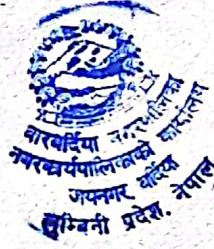 बारबर्दिया नगरपालिका
नगरकार्यपालिकाको कार्यालय
जयनगर बर्दिया
लुम्बिनी प्रदेश, नेपाल